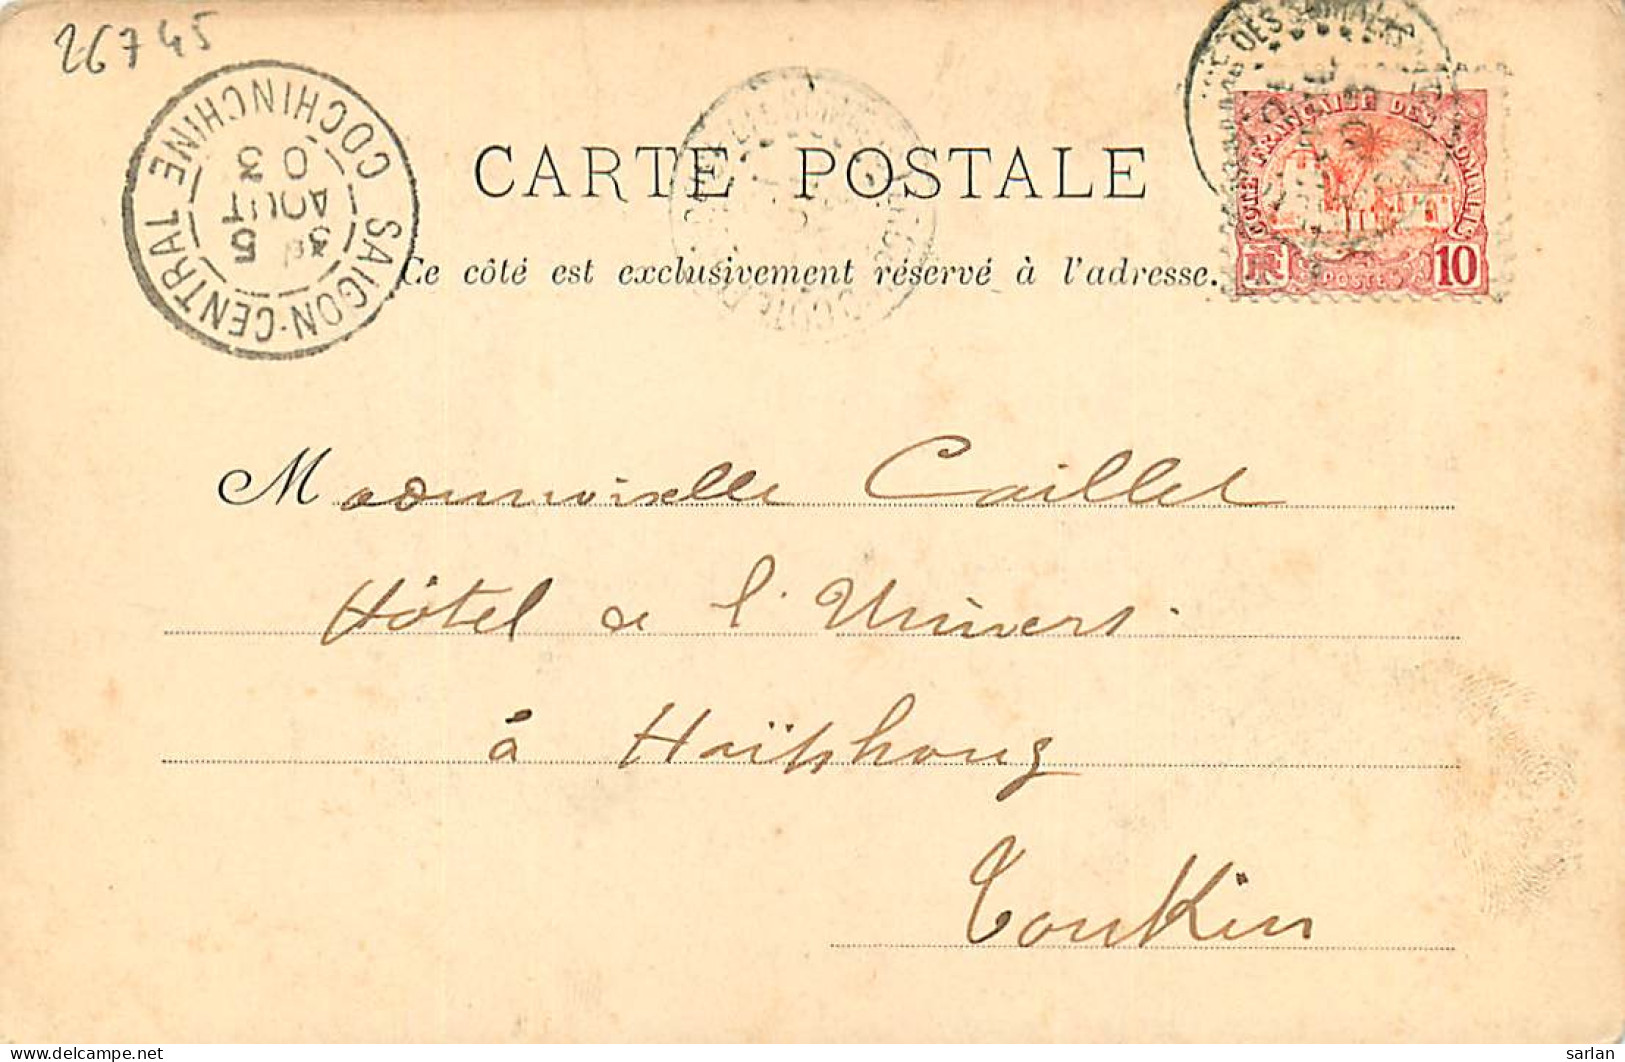 26745
SAIGON-CENTRAL COCHINCHINE
5
AOUT
03
CARTE POSTALE
COTE FRANÇAISE DES SOMALIS
POSTES
10
Ce côté est exclusivement réservé à l'adresse.
Mademoiselle Caillet
Hôtel de l'Univers
à Haïphong
Tonkin
sarlan